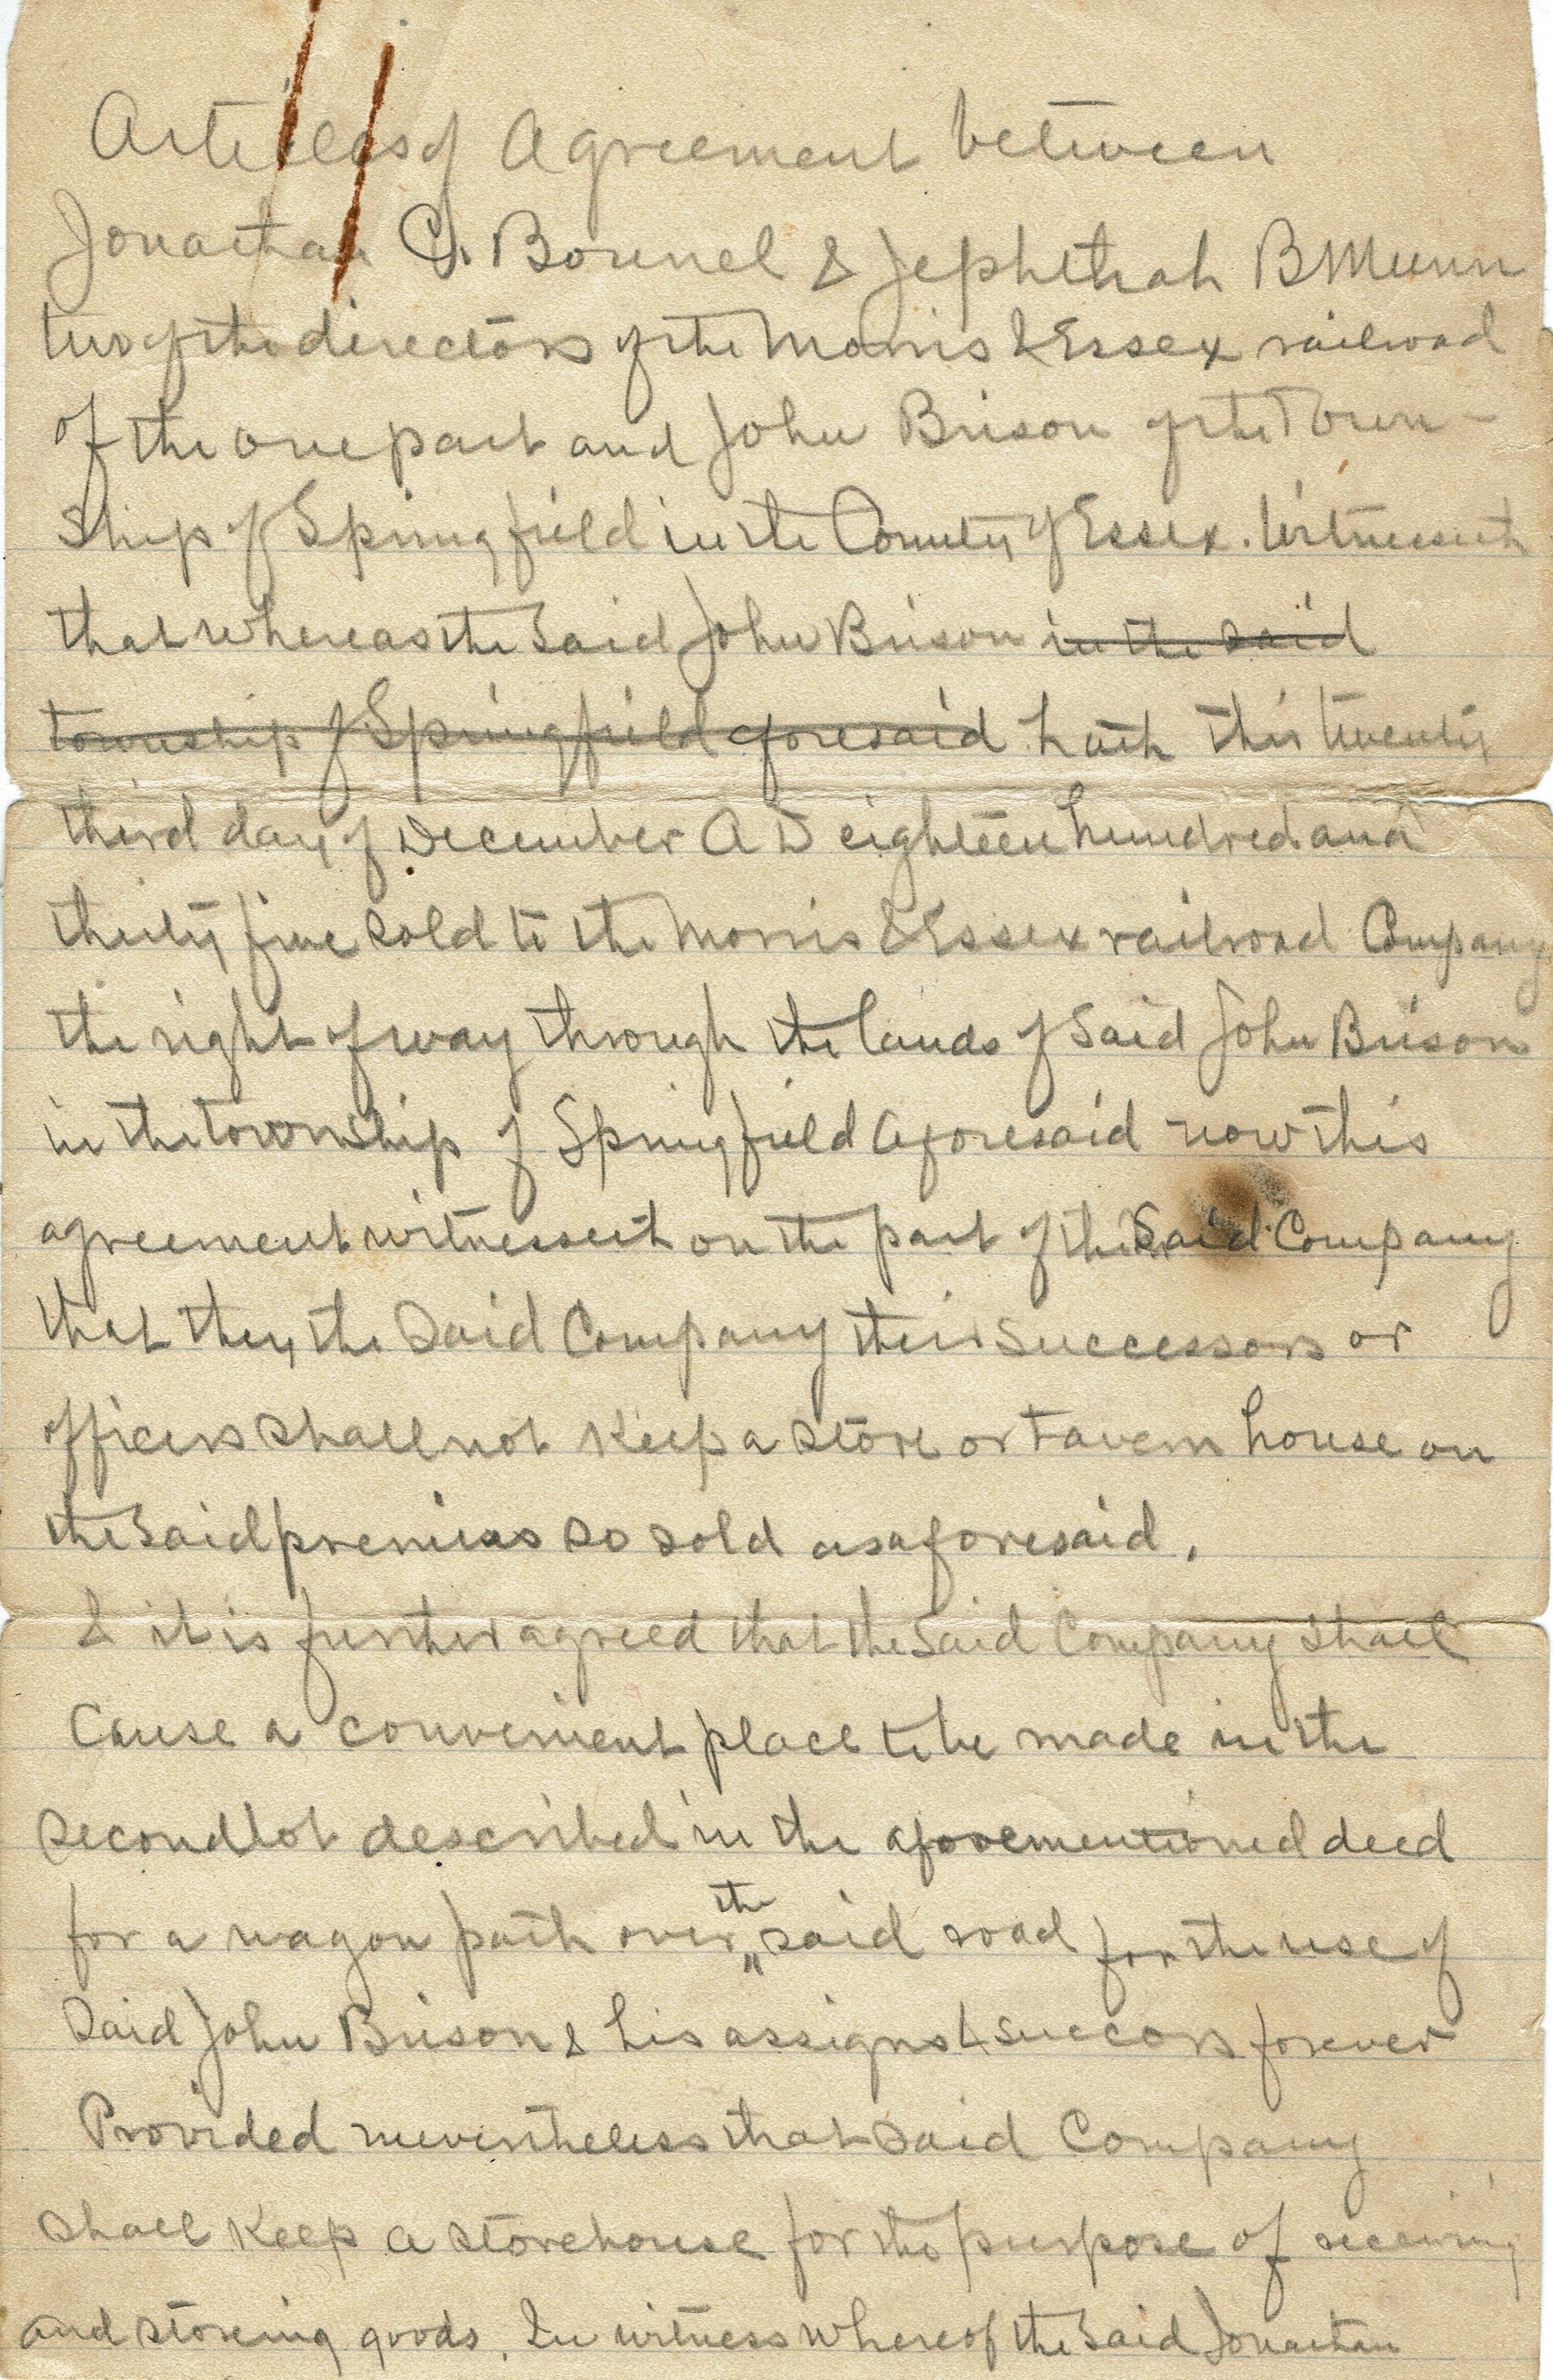 Articles of Agreement between
Jonathan C. Bonnel & Jephthah B Munn
two of the directors of the Morris & Essex railroad
of the one part and John Brison of the Town-
ship of Springfield in the County of Essex. Witnesseth
that whereas the Said John Brison in the said
township of Springfield aforesaid hath this twenty
third day of December A D eighteen hundred and
thirty five sold to the Morris & Essex railroad Company
the right of way through the lands of Said John Brison
in the township of Springfield aforesaid now this
agreement witnesseth on the part of the Said Company
that they, the Said Company their successors or
officers shall not keep a store or tavern house on
the Said premises so sold as aforesaid.
& it is further agreed that the Said Company shall
Cause a convenient place to be made in the
second lot described in the aforementioned deed
for a wagon path over the said road for the use of
Said John Brison & his assigns & succors forever
Provided nevertheless that said Company
shall keep a storehouse for the purpose of receiving
and storeing goods. In witness whereof the Said Jonathan